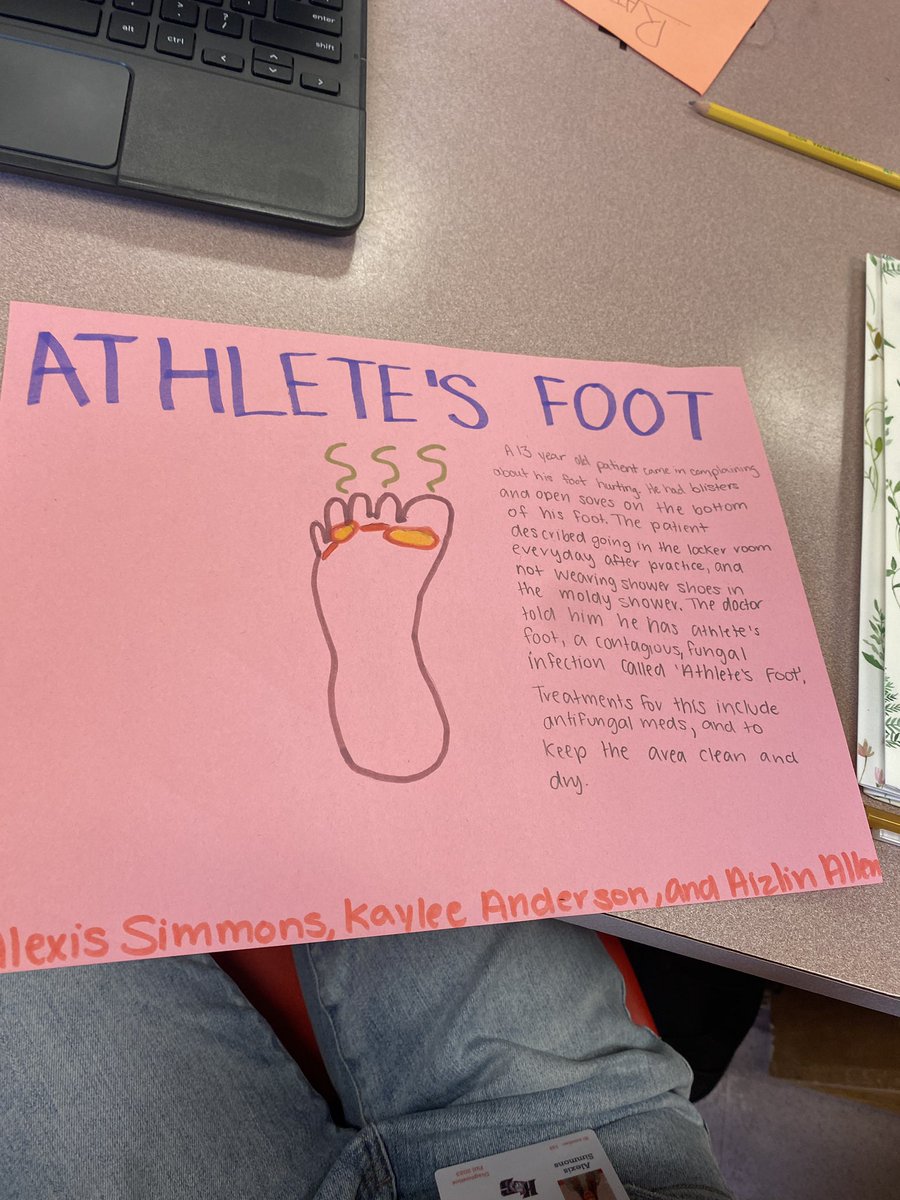 enter
alt
ctrl
?
/
shift
<
>
R
ATHLETE'S FOOT
A 13 year old patient came in complaining
about his foot hurting. He had blisters
and open sores on the bottom
of his foot. The patient
described going in the locker room
everyday after practice, and
not wearing shower shoes in
the moldy shower. The doctor
told him he has athlete's
foot, a contagious, fungal
infection called 'Athlete's Foot'.
Treatments for this include
antifungal meds, and to
keep the area clean and
dry.
Alexis Simmons, Kaylee Anderson, and Aizlin Allen
Alexis
Simmons